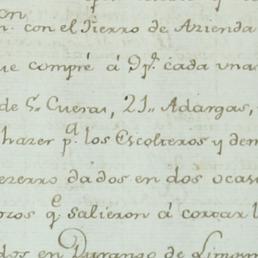 on
n. con el Fierro de Azienda
ue compré á 9 p.s cada una
de S.n Cueras, 21,, Adargas,
hazer p.a los Escolteros y dem
ezerro dados en dos ocas
ozos q.e salieron á cortar l
dos en Durango de Limosn